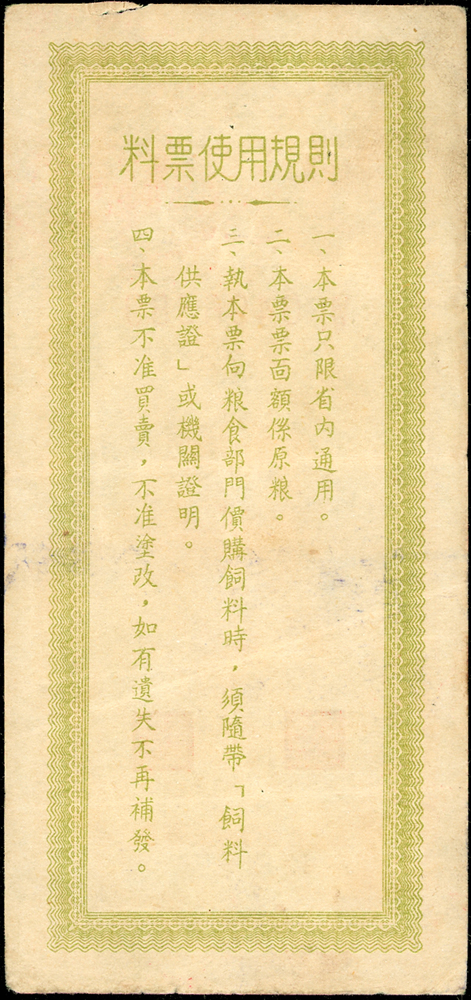 料票使用規則
一、本票只限省內通用。
二、本票票面額係原粮。
三、執本票向粮食部門價購飼料時，須隨帶「飼料
供應證」或機關證明。
四、本票不准買賣，不准塗改，如有遺失不再補發。